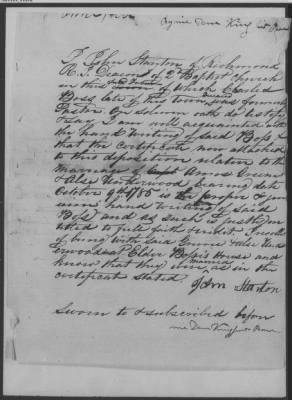 I, John Stanton of Richmond
R. I. Deacon of the Baptist Church
in this Town of which Charles
Boss late of this town, was formerly
Pastor of solemn oath do testify
& say I am well acquainted with
the hand writing of said Boss &
that the certificate now attached
to this deposition relation to the
marriage of Amos Green
& Else Underwood, bearing date
October 9th 1785 is the proper & gen
uine hand writing of said
Boss and as such is justly en
titled to full faith & credit. I recollect
of being with said Amos & Else Und
erwood at Elder Boss's House and
know that they were married as in the
certificate stated
John Stanton
Sworn to & subscribed before